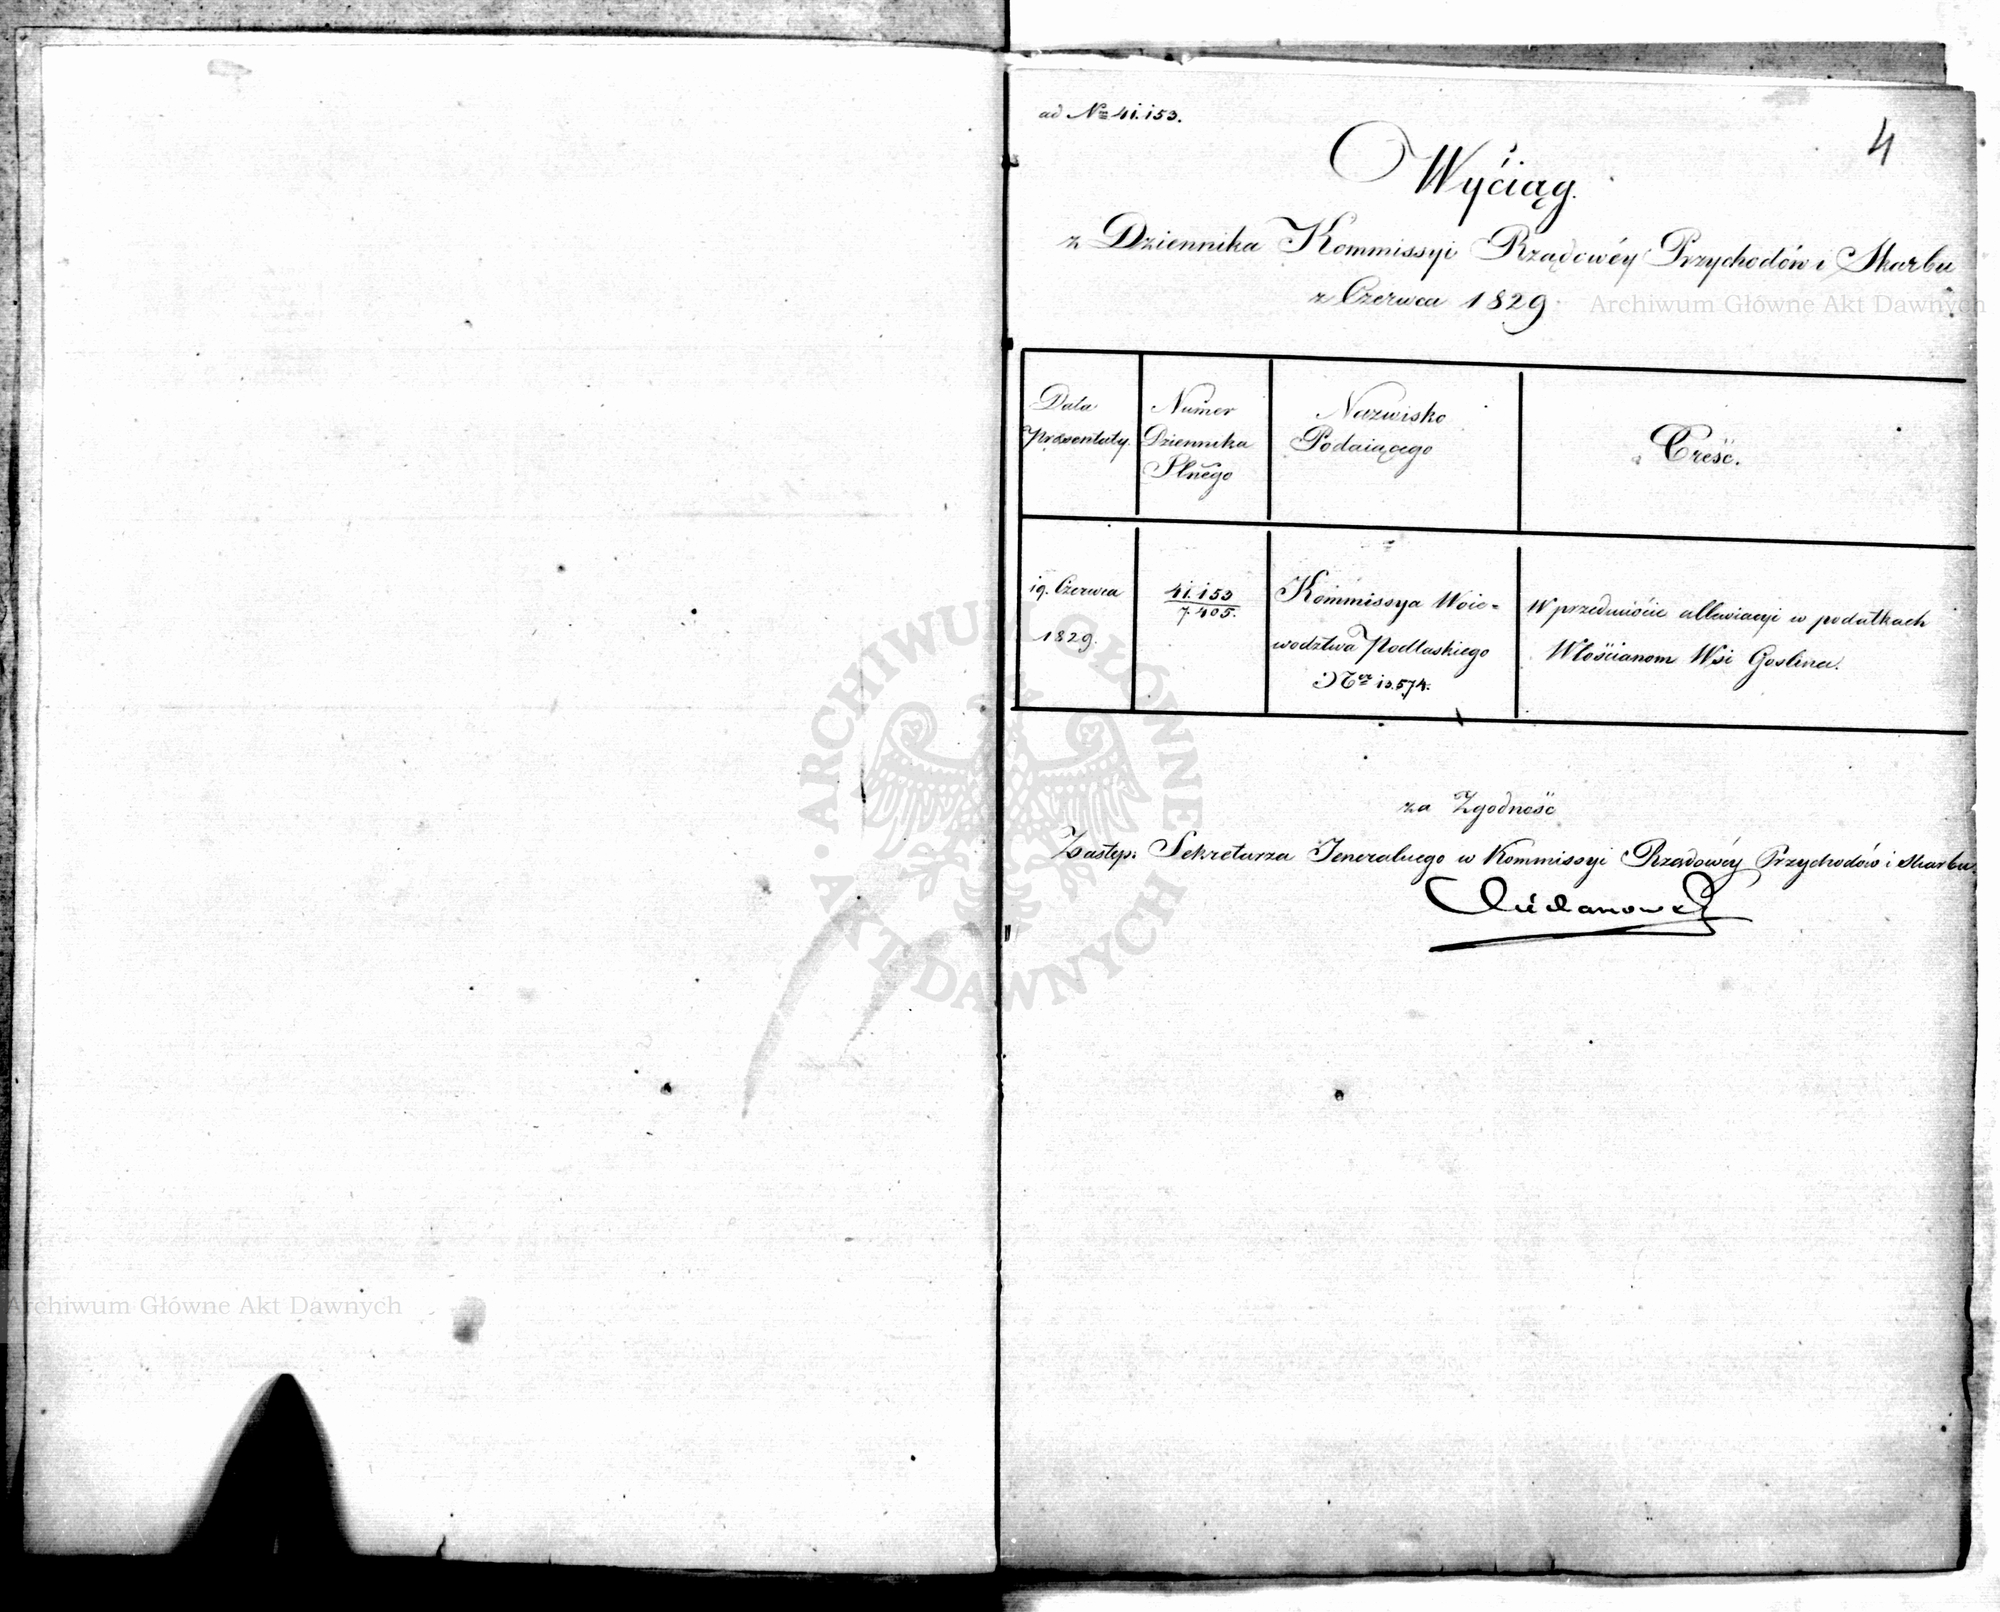 ad Nro 41.153.
4
Wyciąg.
z Dziennika Kommissyi Rządowéy Przychodów i Skarbu
z Czerwca 1829
Archiwum Główne Akt Dawnych
Data
Prezentaty.
Numer
Dziennika
Nazwisko
Podaiącego
Treść.
19. Czerwca
1829.
41.153
7.405.
Kommissya Woie=
wodztwa Podlaskiego
Ner 10.574.
W przedmiocie allewiacyi w podatkach
Włościanom Wsi Goslina.
za Zgodność
Zastęp: Sekretarza Jeneralnego w Kommissyi Rządowéy Przychodów i Skarbu.
ARCHIWUM GŁÓWNE
AKT DAWNYCH
Archiwum Główne Akt Dawnych